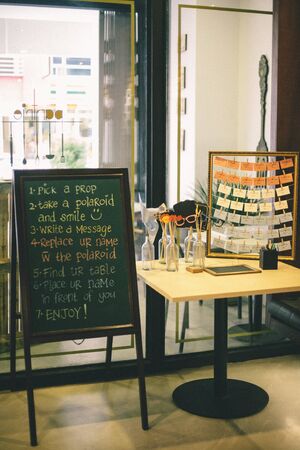 1· Pick a prop
2· take a polaroid
and smile
3· Write a message
4· Replace ur name
w the polaroid
5· Find ur table
6· Place ur name
in front of you
7· ENJOY!